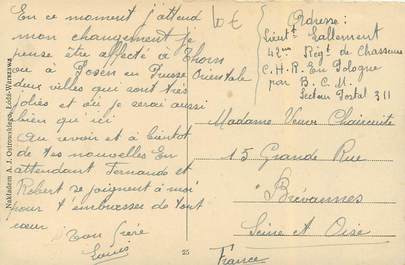 En ce moment j'attend
mon changement je
pense être affecté à Thorn
ou à Posen en Prusse Orientale
deux villes qui sont très
jolies et où je serai aussi
bien qu'ici
Au revoir et à bientot
de tes nouvelles En
attendant Fernande et
Robert se joignent à moi
pour t'embrasser de tout
cœur
Ton frère
Louis
10 €
Adresse:
Lieut Lallement
42me Régt de Chasseurs
C.H.R. En Pologne
par B.C.M.
Secteur Postal 311
Madame Veuve
15 Grande Rue
Brévannes
Seine et Oise
France
Nakładem A. J. Ostrowskiego, Łódź-Warszawa
25